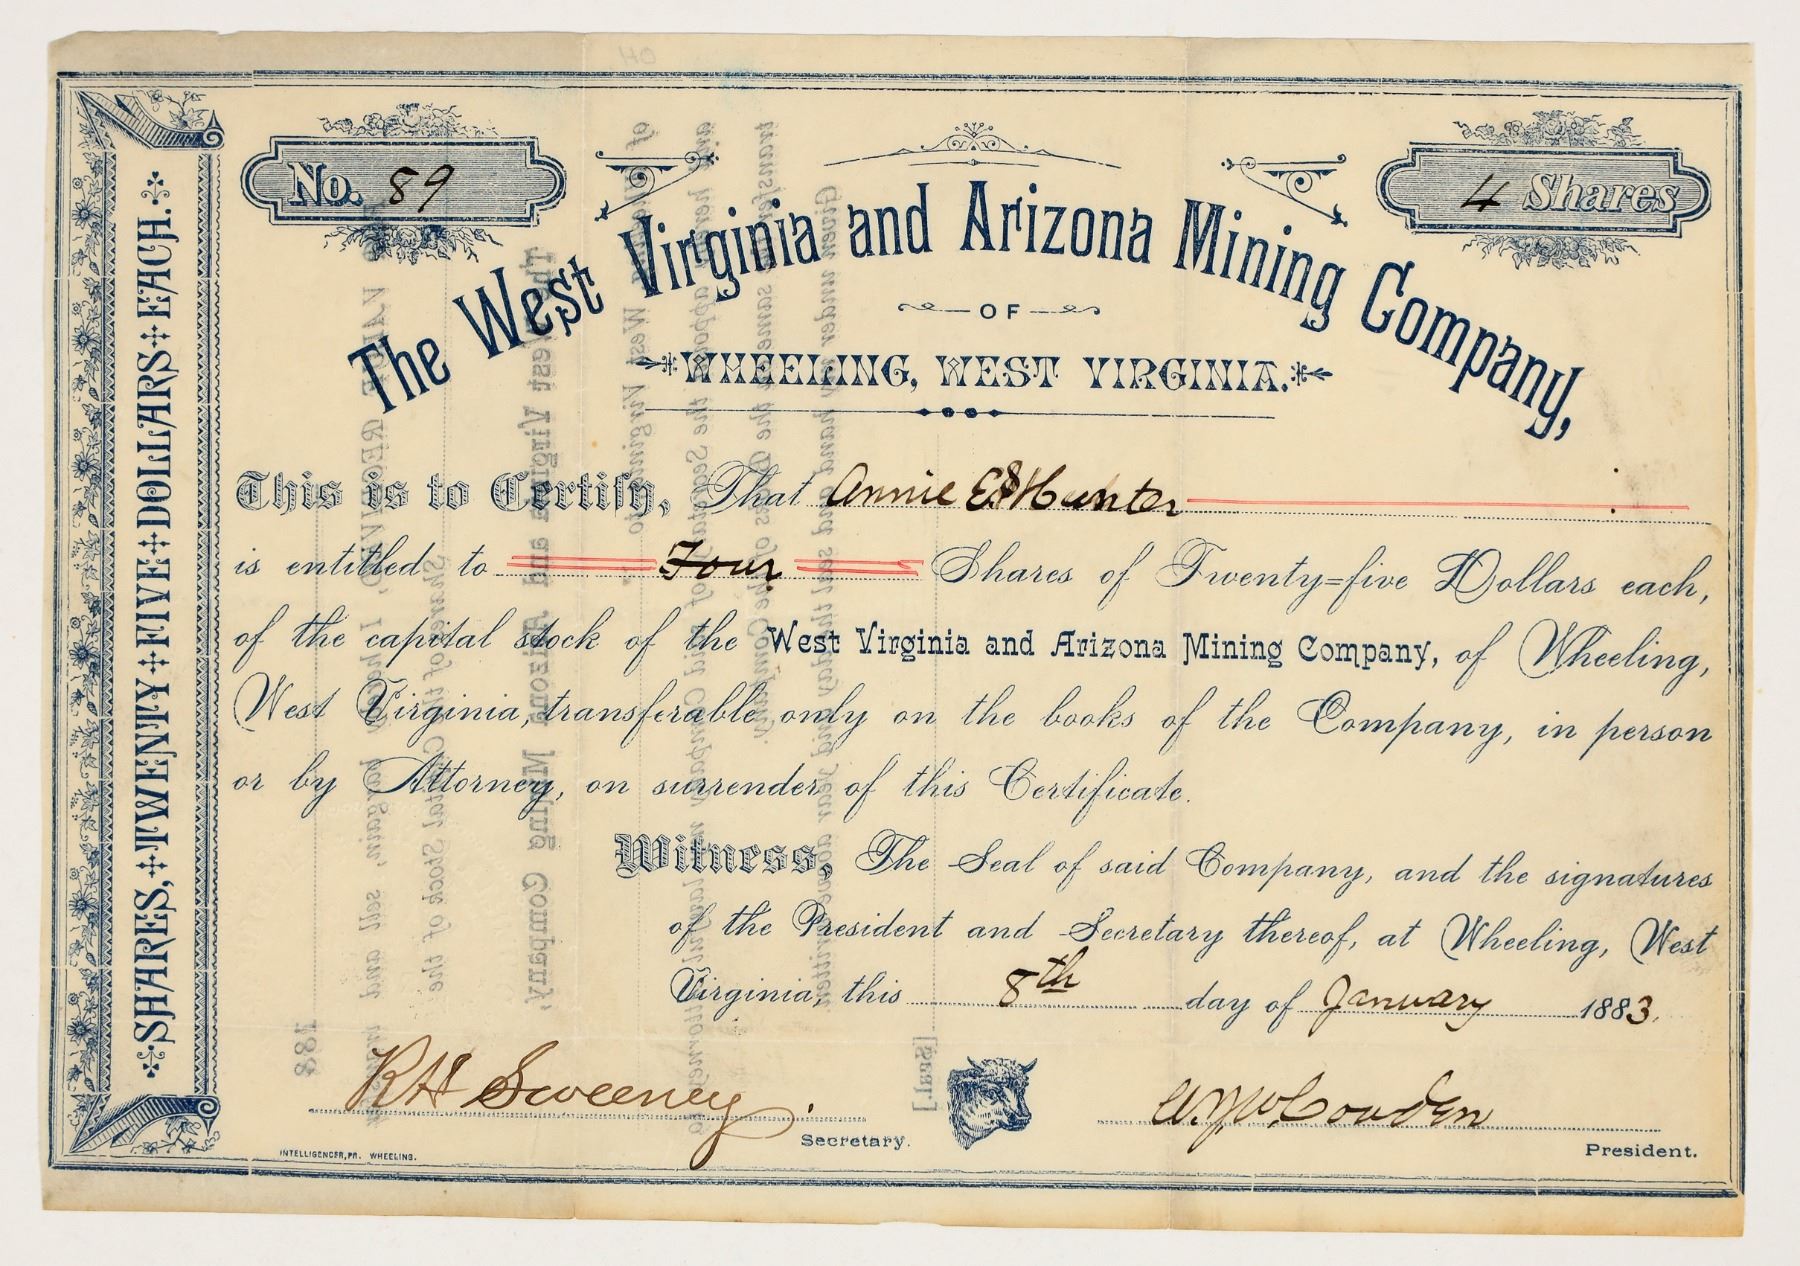 No. 89
4 Shares
The West Virginia and Arizona Mining Company,
OF
WHEELING, WEST VIRGINIA.
SHARES, TWENTY FIVE DOLLARS EACH.
This is to Certify, That Annie E. Hunter
is entitled to Four Shares of Twenty=five Dollars each,
of the capital stock of the West Virginia and Arizona Mining Company, of Wheeling,
West Virginia, transferable only on the books of the Company, in person
or by Attorney, on surrender of this Certificate.
Witness, The Seal of said Company, and the signatures
of the President and Secretary thereof, at Wheeling, West
Virginia, this 8th day of January 1883.
R H Sweeney
Secretary.
Cowden
President.
INTELLIGENCER, PR. WHEELING.